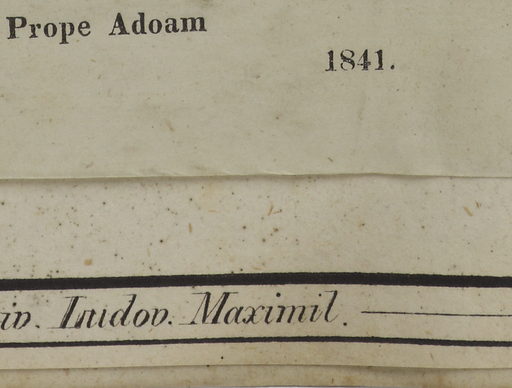 Prope Adoam
1841.
iv. Ludov. Maximil.